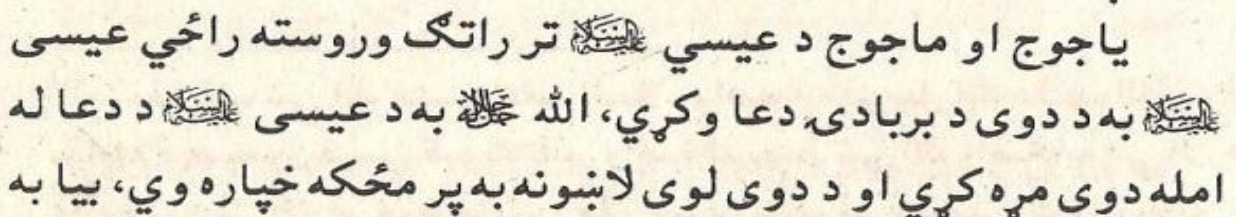 ياجوج او ماجوج د عيسي عليه السلام تر راتګ وروسته راځي عيسى
عليه السلام به د دوى د بربادۍ دعا وكړي، الله جل جلاله به د عيسى عليه السلام د دعا له
امله دوى مړه كړي او د دوى لوى لاښونه به پر مځكه خپاره وي، بيا به